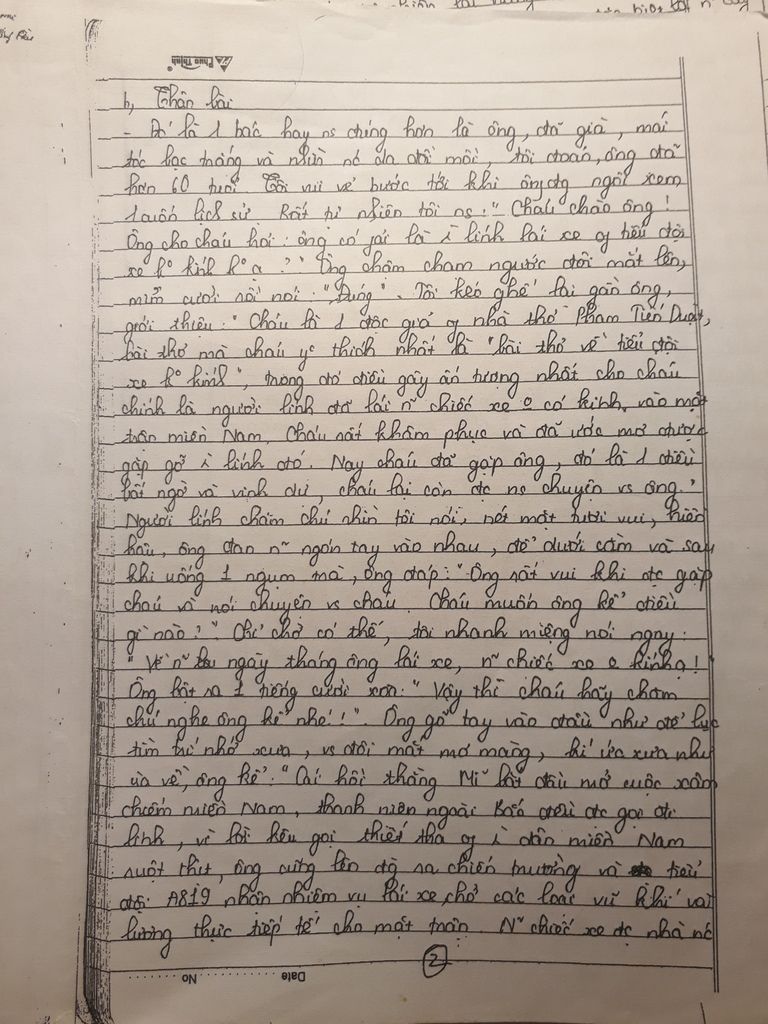 Phúc Thịnh
b, Thân bài
- Đó là 1 bác hay ns đúng hơn là ông, đã già, mái
tóc bạc trắng và nhìn nc da đồi mồi, tôi đoán, ông đã
hơn 60 tuổi. Tôi vui vẻ bước tới khi ông đg ngồi xem
1 cuốn lịch sử. Rất tự nhiên tôi ns: "Cháu chào ông!
Ông cho cháu hỏi: ông có fải là lính lái xe of tiểu đội
xe ko kính ko ạ?" Ông chậm chạm ngước đôi mắt lên,
mỉm cười rồi nói: "Đúng". Tôi kéo ghế lại gần ông,
giới thiệu: "Cháu là 1 độc giả of nhà thơ Phạm Tiến Duật,
bài thơ mà cháu yo thích nhất là "bài thơ về tiểu đội
xe ko kính", trong đó điều gây ấn tượng nhất cho cháu
chính là người lính đã lái n~ chiếc xe o có kính, vào mặt
trận miền Nam. Cháu rất khâm phục và đã ước mơ được
gặp gỡ lính đó. Nay cháu đã gặp ông, đó là 1 điều
bất ngờ và vinh dự, cháu lại còn đc ns chuyện vs ông."
Người lính chăm chú nhìn tôi nói, nét mặt tươi vui, hiền
hậu, ông đan n~ ngón tay vào nhau, để dưới cằm và sau
khi uống 1 ngụm trà, ông đáp: "Ông rất vui khi đc gặp
cháu và nói chuyện vs cháu. Cháu muốn ông kể điều
gì nào?" Chỉ chờ có thế, tôi nhanh miệng nói ngay:
"Về n~ ngày tháng ông lái xe, n~ chiếc xe o kính ạ!"
Ông bật ra 1 tiếng cười ròn: "Vậy thì cháu hãy chăm
chú nghe ông kể nhé!!". Ông gõ tay vào đầu như để lục
tìm trí nhớ xưa, vs đôi mắt mơ màng, kí ức xưa như
ùa về, ông kể: "Cái hồi thằng Mĩ bắt đầu mở cuộc xâm
chiếm miền Nam, thanh niên ngoài Bắc đều đc gọi đi
lính, vì lời kêu gọi thiết tha of dân miền Nam
ruột thịt, ông cũng lên đg ra chiến trường và tiểu
đội A819 nhận nhiệm vụ lái xe, chở các loại vũ khí và
lương thực tiếp tế cho mặt trận. N~ chiếc xe đc nhà nc
2
Date No